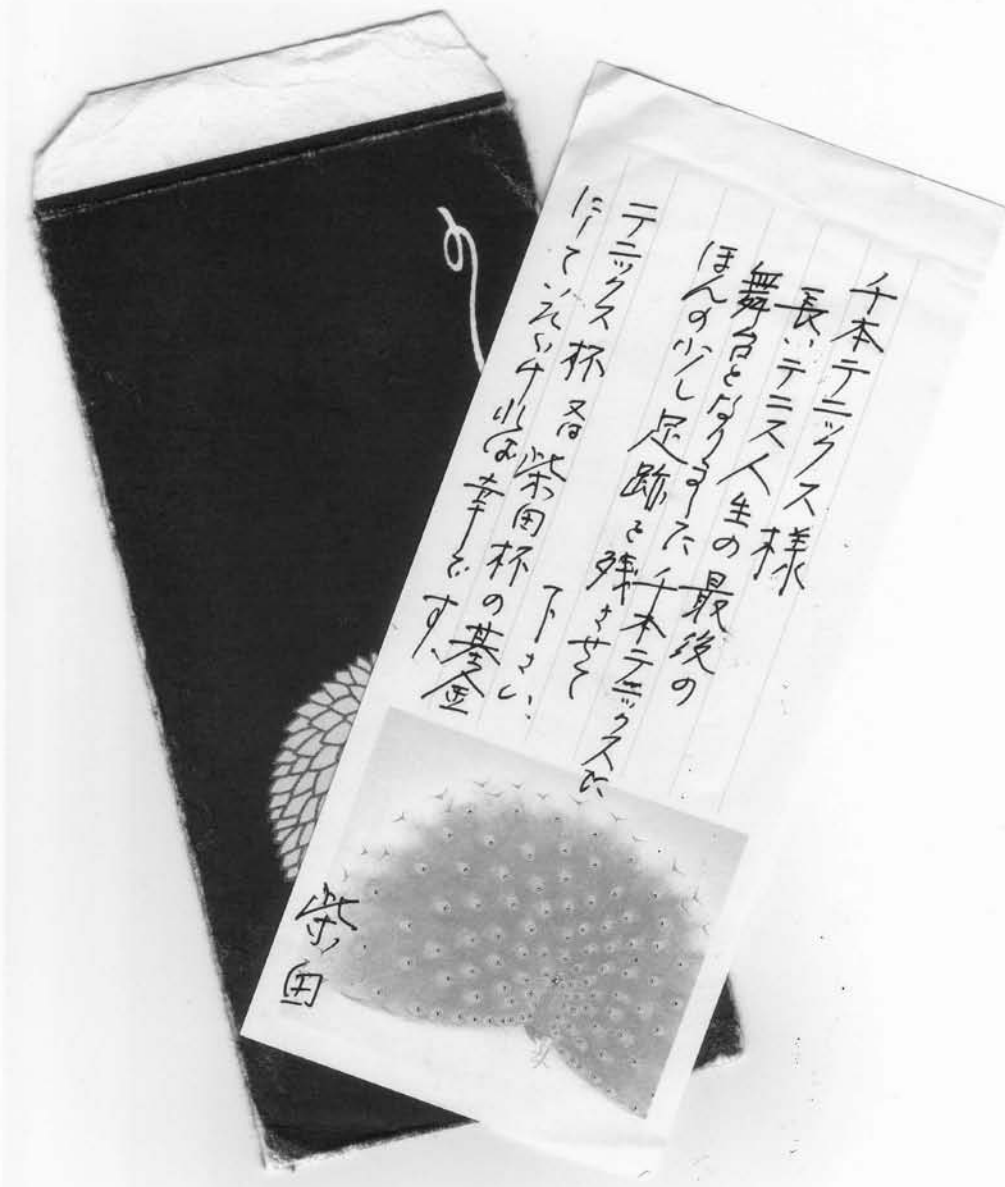 千本テニックス様
長いテニス人生の最後の
舞台となりました千本テニックスに
ほんの少し足跡を残させて
下さい、
テニックス杯又は柴田杯の基金
にしていただければ幸です、
柴田